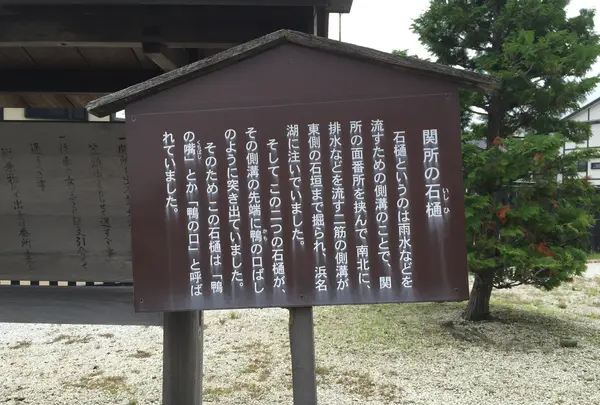 関所の石樋
いしひ
石樋というのは雨水などを
流すための側溝のことで、関
所の面番所を挟んで南北に、
排水などを流す二筋の側溝が
東側の石垣まで掘られ、浜名
湖に注いでいました。
そして、この二つの石樋が、
その側溝の先端に鴨の口ばし
のように突き出ていました。
そのため、この石樋は「鴨
の嘴」とか「鴨の口」と呼ば
くちばし
れていました。